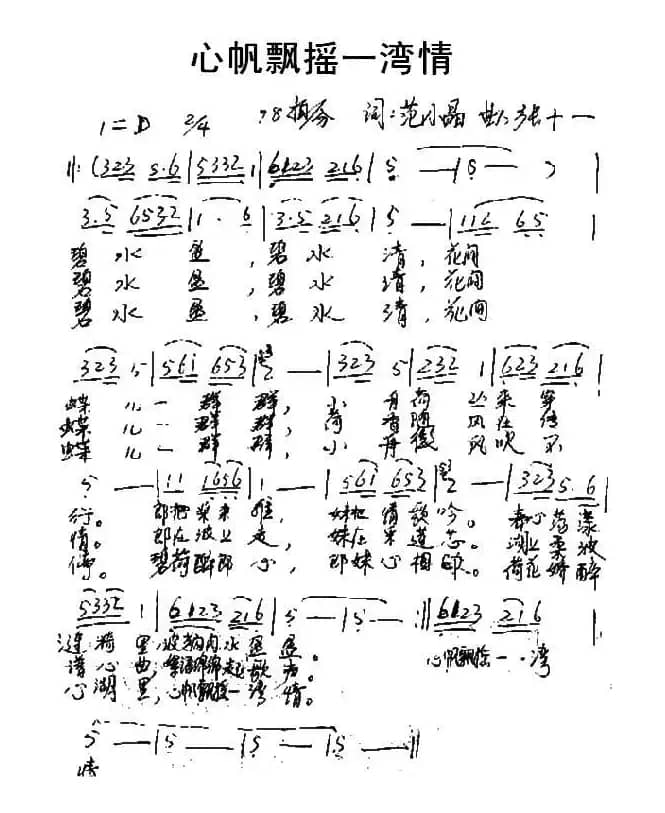 心帆飘摇一湾情
1=D 2/4 词:范小晶 曲:张十一
‖:(323 5·6|5332 1|6123 216|5 —|5 —)|
3·5 6532|1·6|3·5 216|5 —|116 65|
碧水盈,碧水清,花间
碧水盈,碧水清,花间
碧水盈,碧水清,花间
323 5|561 653|2 —|323 5|232 1|623 216|
蝶儿一群群,小舟荷丛来穿
蝶儿一群群,荷有随风在传
蝶儿一群群,小舟微风吹不
5 —|11 1656|1 —|561 653|2 —|323 5·6|
行。郎把桨来推,妹把情歌吟。春心荡漾
情。郎在波上走,妹在采莲芯。湖上柔波
停。碧荷醉郎心,郎妹心相印。荷花娇醉
5332 1|6123 216|5 —|5 — :‖ 6123 216|
涟漪里,水盈盈。
谱心曲,起歌声。心帆飘摇一湾
心湖里,心帆飘摇一湾情。
5 —|5 —|5 —|5 —‖
情